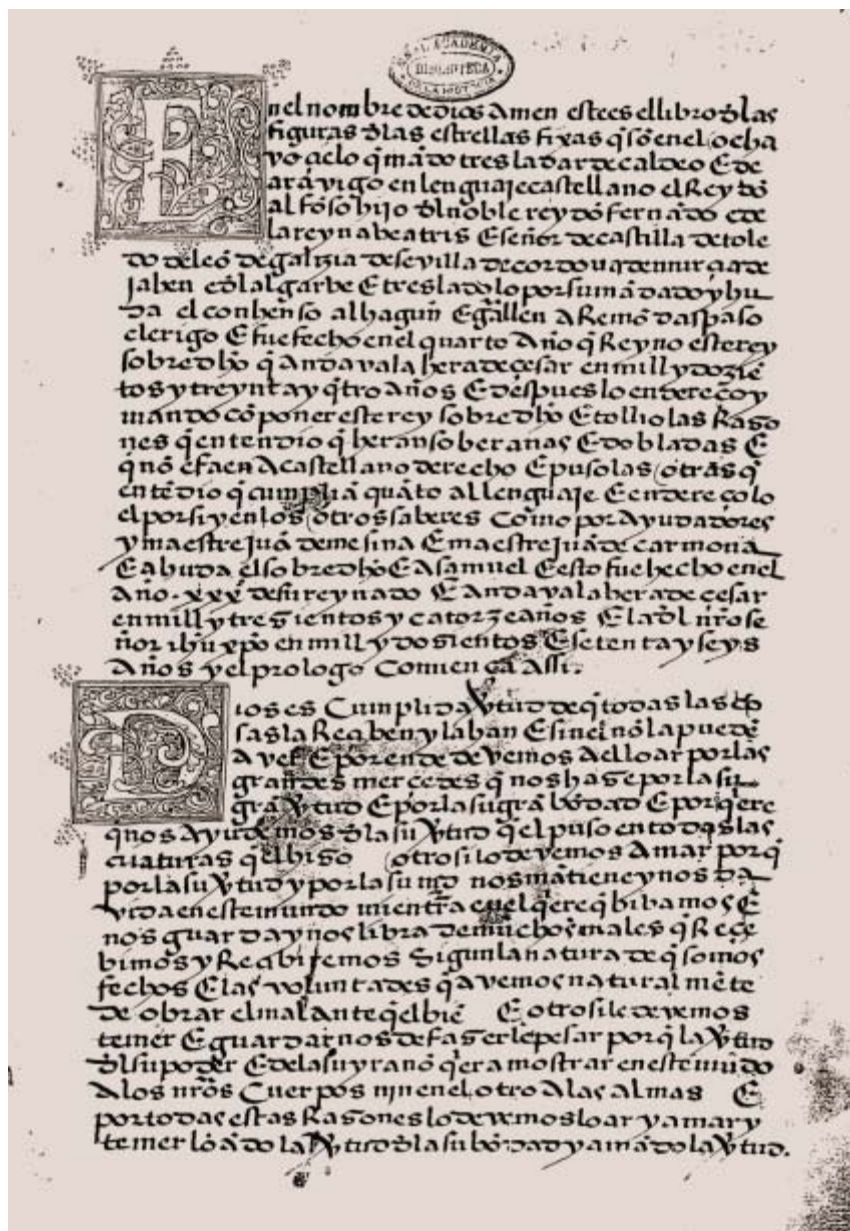 REAL ACADEMIA
BIBLIOTECA
DE LA HISTORIA
En el nombre de dios Amen este es el libro dlas
figuras dlas estrellas fixas q̄ sō en el ocha
vo çielo q̄ mādo tresladar de caldeo E de
arāvigo en lenguaje castellano el Rey dō
alfōso hijo dl noble rey dō fernādo e de
la reyna beatris E señor de castilla de tole
do de leō de galizia de sevilla de cordoua de murçia de
jahen e dl algarbe E tresladolo por su mādado yhu
da el conhenso alhagun E g̃llen ARemō daspaso
clerigo E fue fecho en el quarto Año q̄ Reyno este rey
sobredho q̄ Andava la hera de çesar en mill y dozie
tos y treynta y q̄tro años E despues lo endereço y
mando cōponer este rey sobredho E tollio las Razo
nes q̄ entendio q̄ heran soberanas E dobladas E
q̄ nō e faen A castellano derecho E pusolas otras q̄
entēdio q̄ cumpliā quāto al lenguaje E endereçolo
el por si y en los otros saberes Como por Ayudadores
y maestre Juā de mesina E maestre Juā de carmona
E abuda el sobredho E A samuel E esto fue hecho en el
año . xxx̃ de su reynado E Andava la hera de çesar
en mill y tregientos y catorze años E la dl nr̄o se
ñor ihū xp̄o en mill y dosientos E setenta y seys
Años y el prologo Comiença Assi.
Dios es Cumplida v̄tud de q̄ todas las co
sas la Reçiben y la han E sin el nō la puedē
aver E por ende devemos A el loar por las
grandes merçedes q̄ nos haze por la su
grā v̄tud E por la su grā bōdad E porq̄ ere
q̄ nos Ayudemos dla su v̄tud q̄ el puso en todas las
criaturas q̄ el higo otrosi lo devemos Amar porq̄
por la su v̄tud y por la su md nos mātiene y nos da
vida en este mundo mientra el q̄ere q̄ bibamos E
nos guarda y nos libra de muchos males q̄ Reçe
bimos y Reçbiremos Sigun la natura de q̄ somos
fechos E las voluntades q̄ avemos naturalmēte
de obrar el mal ante q̄ el biē E otrosi le devemos
temer E guardarnos de fazer le pesar porq̄ la v̄tud
dl su poder E de la su yra nō q̄era mostrar en este mūdo
A los nr̄os Cuerpos nin en el otro A las almas E
por todas estas Razones lo devemos loar y amar y
temer loādo la v̄tud dla su bōdad y amādo la v̄tud.